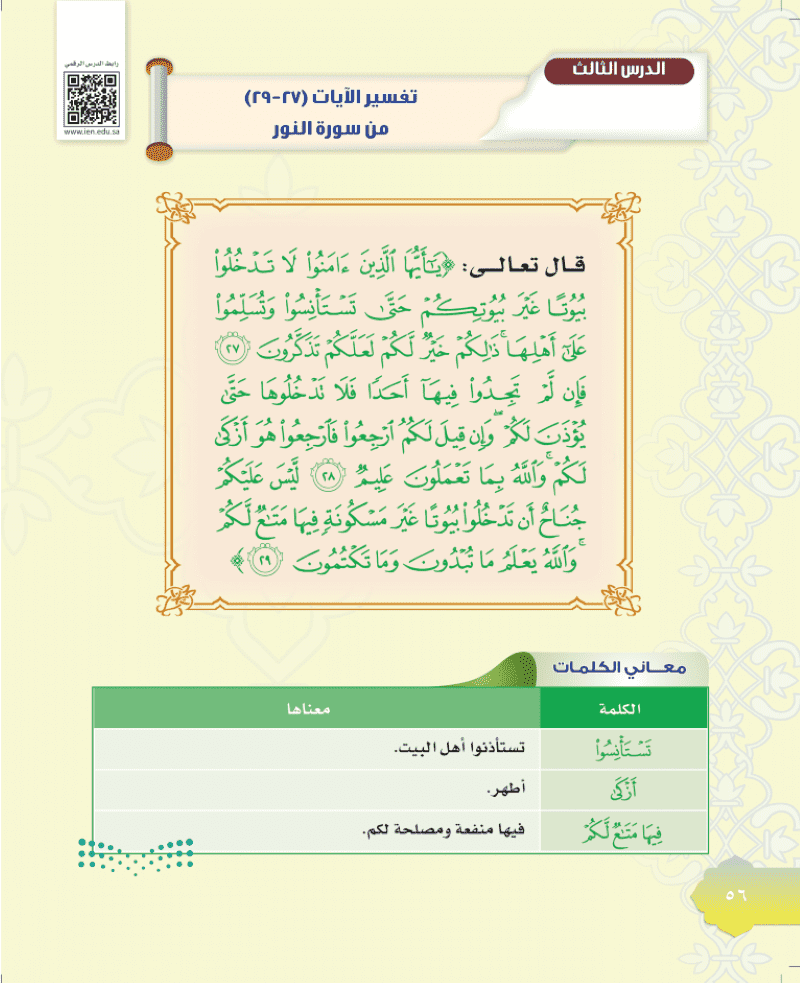 رابط الدرس الرقمي
www.ien.edu.sa
الدرس الثالث
تفسير الآيات (٢٧-٢٩)
من سورة النور
قال تعالى: ﴿يَٰٓأَيُّهَا ٱلَّذِينَ ءَامَنُوا۟ لَا تَدۡخُلُوا۟
بُيُوتًا غَيۡرَ بُيُوتِكُمۡ حَتَّىٰ تَسۡتَأۡنِسُوا۟ وَتُسَلِّمُوا۟
عَلَىٰٓ أَهۡلِهَاۚ ذَٰلِكُمۡ خَيۡرٞ لَّكُمۡ لَعَلَّكُمۡ تَذَكَّرُونَ ٢٧
فَإِن لَّمۡ تَجِدُوا۟ فِيهَآ أَحَدٗا فَلَا تَدۡخُلُوهَا حَتَّىٰ
يُؤۡذَنَ لَكُمۡۖ وَإِن قِيلَ لَكُمُ ٱرۡجِعُوا۟ فَٱرۡجِعُوا۟ هُوَ أَزۡكَىٰ
لَكُمۡۚ وَٱللَّهُ بِمَا تَعۡمَلُونَ عَلِيمٞ ٢٨ لَّيۡسَ عَلَيۡكُمۡ
جُنَاحٌ أَن تَدۡخُلُوا۟ بُيُوتًا غَيۡرَ مَسۡكُونَةٖ فِيهَا مَتَٰعٞ لَّكُمۡ
ۚ وَٱللَّهُ يَعۡلَمُ مَا تُبۡدُونَ وَمَا تَكۡتُمُونَ ٢٩﴾
معاني الكلمات
الكلمة معناها
تَسۡتَأۡنِسُوا۟ تستأذنوا أهل البيت.
أَزۡكَىٰ أطهر.
فِيهَا مَتَٰعٞ لَّكُمۡ فيها منفعة ومصلحة لكم.
٥٦